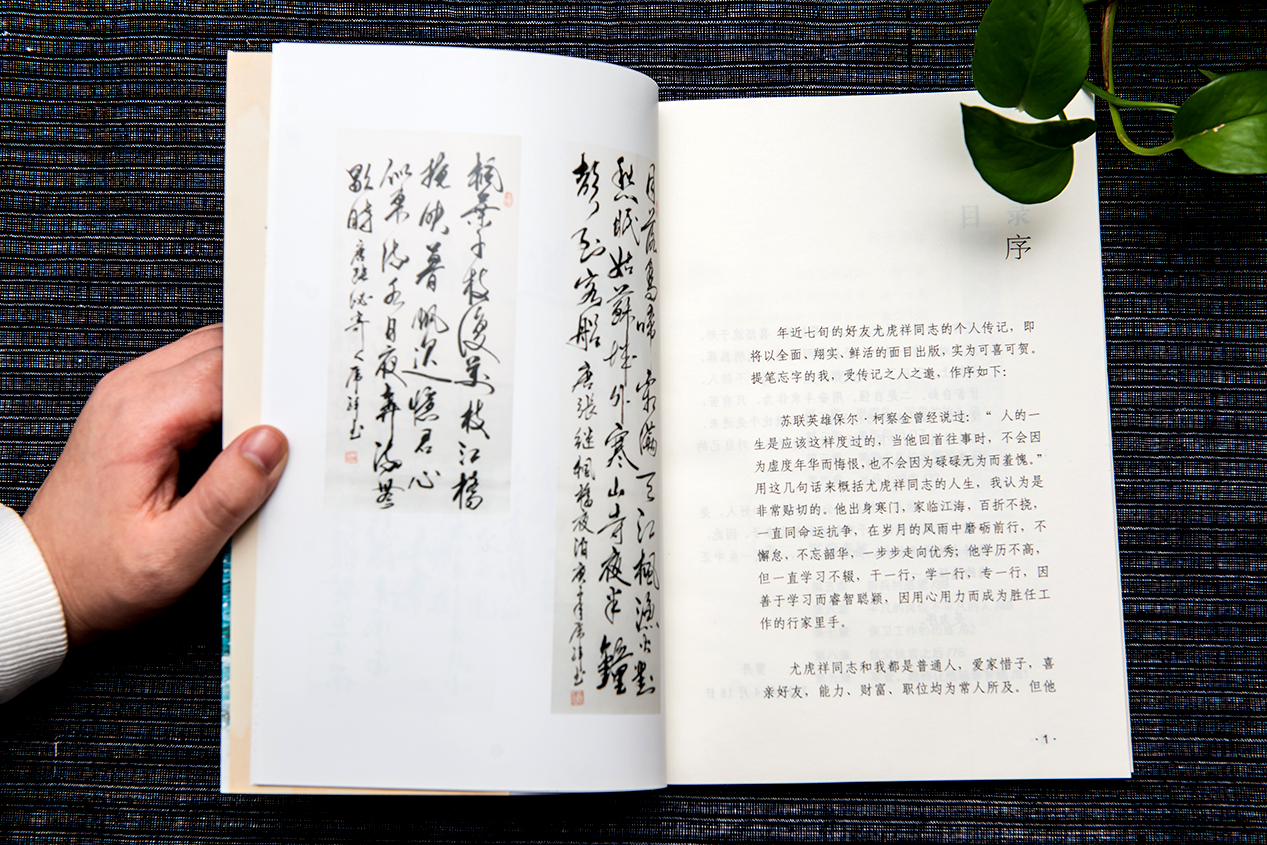 月落烏啼霜滿天江楓漁火對
愁眠姑蘇城外寒山寺夜半鐘
聲到客船 唐張繼楓橋夜泊
楓葉千枝復萬枝江橋
掩映暮帆遲憶君心
水日夜流無
歇時
序
年近七旬的好友尤虎祥同志的个人传记，即
将以全面、翔实、鲜活的面目出版，实为可喜可贺。
提笔忘字的我，受传记之人之邀，作序如下：
苏联英雄保尔·柯察金曾经说过：“ 人的一
生是应该这样度过的，当他回首往事时，不会因
为虚度年华而悔恨，也不会因为碌碌无为而羞愧。”
用这几句话来概括尤虎祥同志的人生，我认为是
非常贴切的。他出身寒门，家临江海，百折不挠，
一直同命运抗争，在岁月的风雨中磨砺前行，不
懈怠，不忘韶华，一步步走向优秀；他学历不高，
但一直学习不辍，干一行，学一行，专一行，因
善于学习而睿智聪颖，因用心用力而成为胜任工
作的行家里手。
尤虎祥同志和我都是普通人，爱家惜子，喜
亲好友，能力、财富、职位均为常人所及。但他
·1·